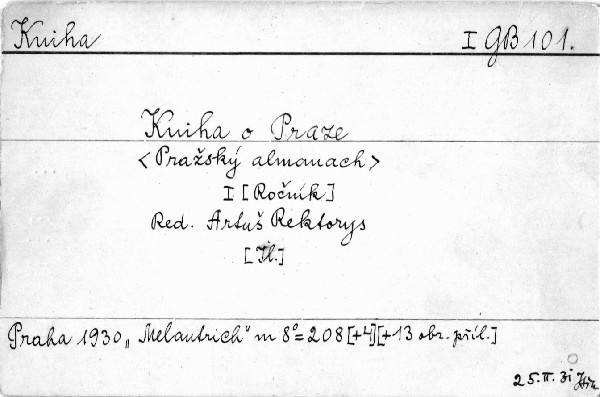 Kniha I GB 101.
Kniha o Praze
< Pražský almanach >
I [Ročník]
Red. Artuš Rektorys
[Il.]
Praha 1930 „Melantrich" m 8° = 208 [+4] [+13 obr. příl.]
25. II. 31